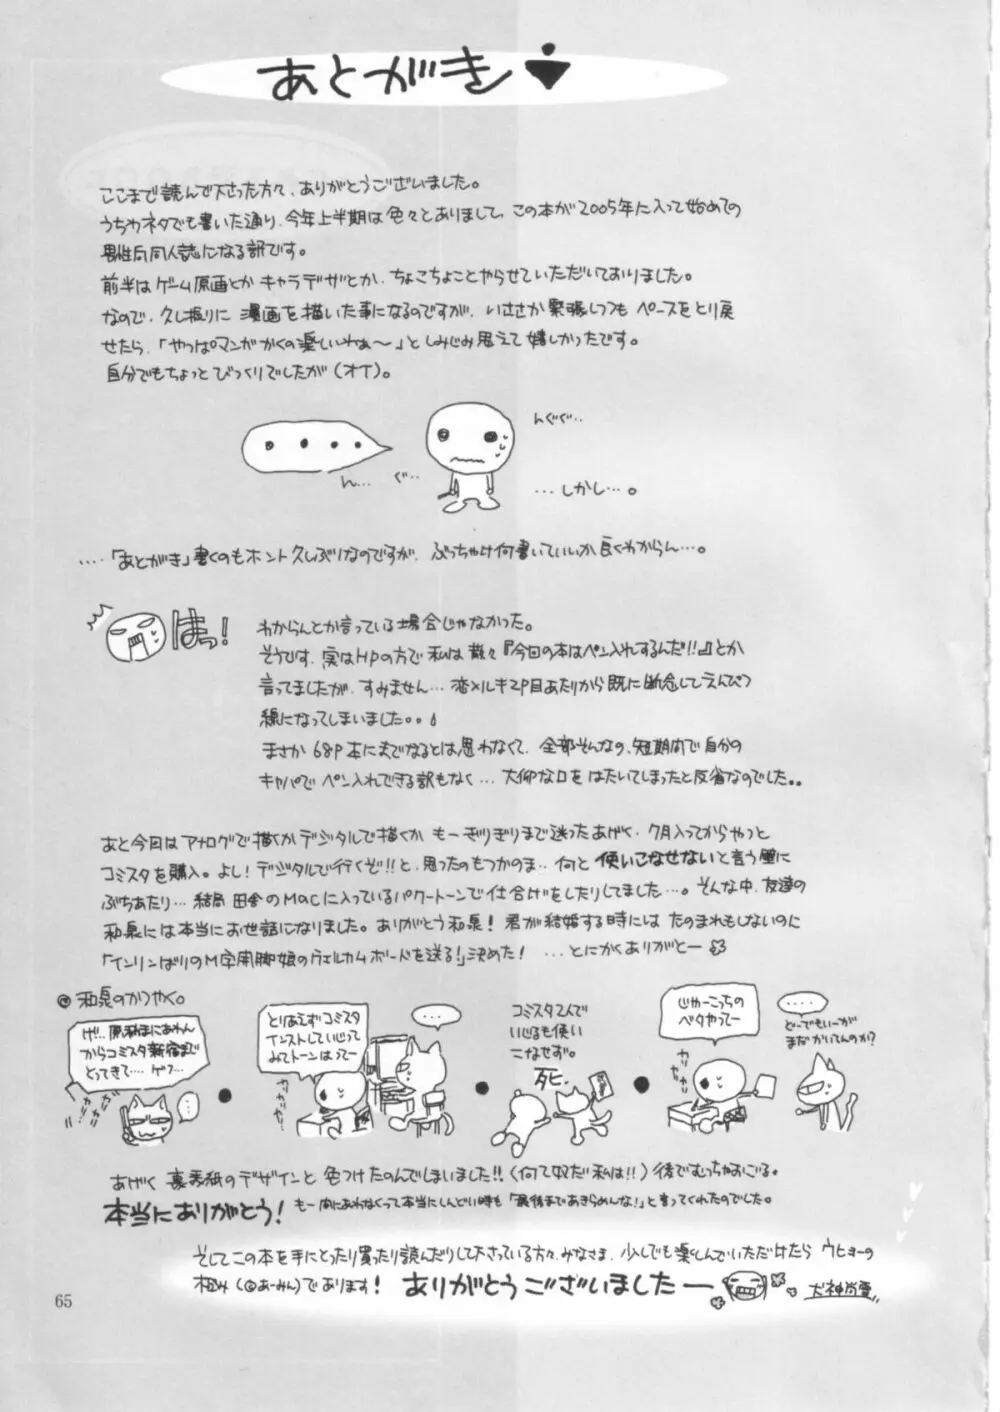 あとがき
ここまで読んで下さった方々、ありがとうございました。
うちわネタでも書いた通り、今年上半期は色々とありまして、この本が2005年に入って始めての
男性向同人誌になる訳です。
前半はゲーム原画とかキャラデザとか、ちょこちょことやらせていただいておりました。
なので、久し振りに漫画を描いた事になるのですが、いささか緊張しつつもペースをとり戻
せたら、「やっぱマンガかくの楽しいわぁ〜」としみじみ思えて嬉しかったです。
自分でもちょっとびっくりでしたが(オイ)。
・・・・
ん… ぐ…
んぐぐ…
…しかし…。
….「あとがき」書くのもホント久しぶりなのですが、ぶっちゃけ何書いていいか良くわからん…。
はっ!
わからんとか言っている場合じゃなかった。
そうです、実はHPの方で私は散々『今回の本はペン入れするんだ!!』とか
言ってましたが、すみません…恋×ルキ2P目あたりから既に断念してえんぴつ
線になってしまいました。。
まさか68P本にまでなるとは思わなくて、全部そんなの、短期間で自分の
キャパでペン入れできる訳もなく…大仰な口をはたいてしまったと反省なのでした。。
あと今回はアナログで描くかデジタルで描くかもーぎりぎりまで迷ったあげく、7月入ってからやっと
コミスタを購入。よし!デジタルで行くぞ!!と、思ったのもつかのま…何と使いこなせないと言う壁に
ぶちあたり…結局田舎のMacに入っているパワートーンで仕上げをしたりしてました…。そんな中、友達の
和泉には本当にお世話になりました。ありがとう和泉!君が結婚する時にはたのまれもしないのに
「インリンばりのM字開脚娘のウェルカムボードを送る!」決めた! …とにかくありがとー
和泉のかつやく。
げ!..原稿まにあわん
からコミスタ新宿まで
とってきて…. ゲフ…
…
とりあえずコミスタ
インストして心じって
みてトーンはってー
カリカリ
…
コミスタてんで
いじるも使い
こなせず。
死.
じゃーこっちの
ベタやってー
カリカリ
….
どーでもいーが
まだかいてんのか?
あげく裏表紙のデザインと色つけたのんでしまいました!!(何て奴だ私は!!)後でむっちゃおごる。
本当にありがとう! もー間にあわなくって本当にしんどい時も「最後まであきらめんな!」と言ってくれたのでした。
そしてこの本を手にとったり買ったり読んだりして下さっている方々、みなさま、少しでも楽しんでいただけたらウヒョーの
極み(◎あーみん)であります! ありがとうございましたー 犬神尚雪
65